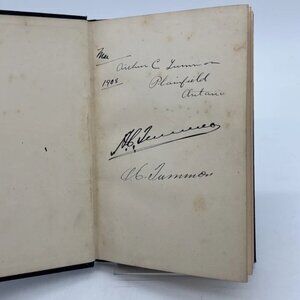 Mar
Arthur C Tummon
1905 Plainfield
Ontario
A.C. Tummon
A C. Tummon